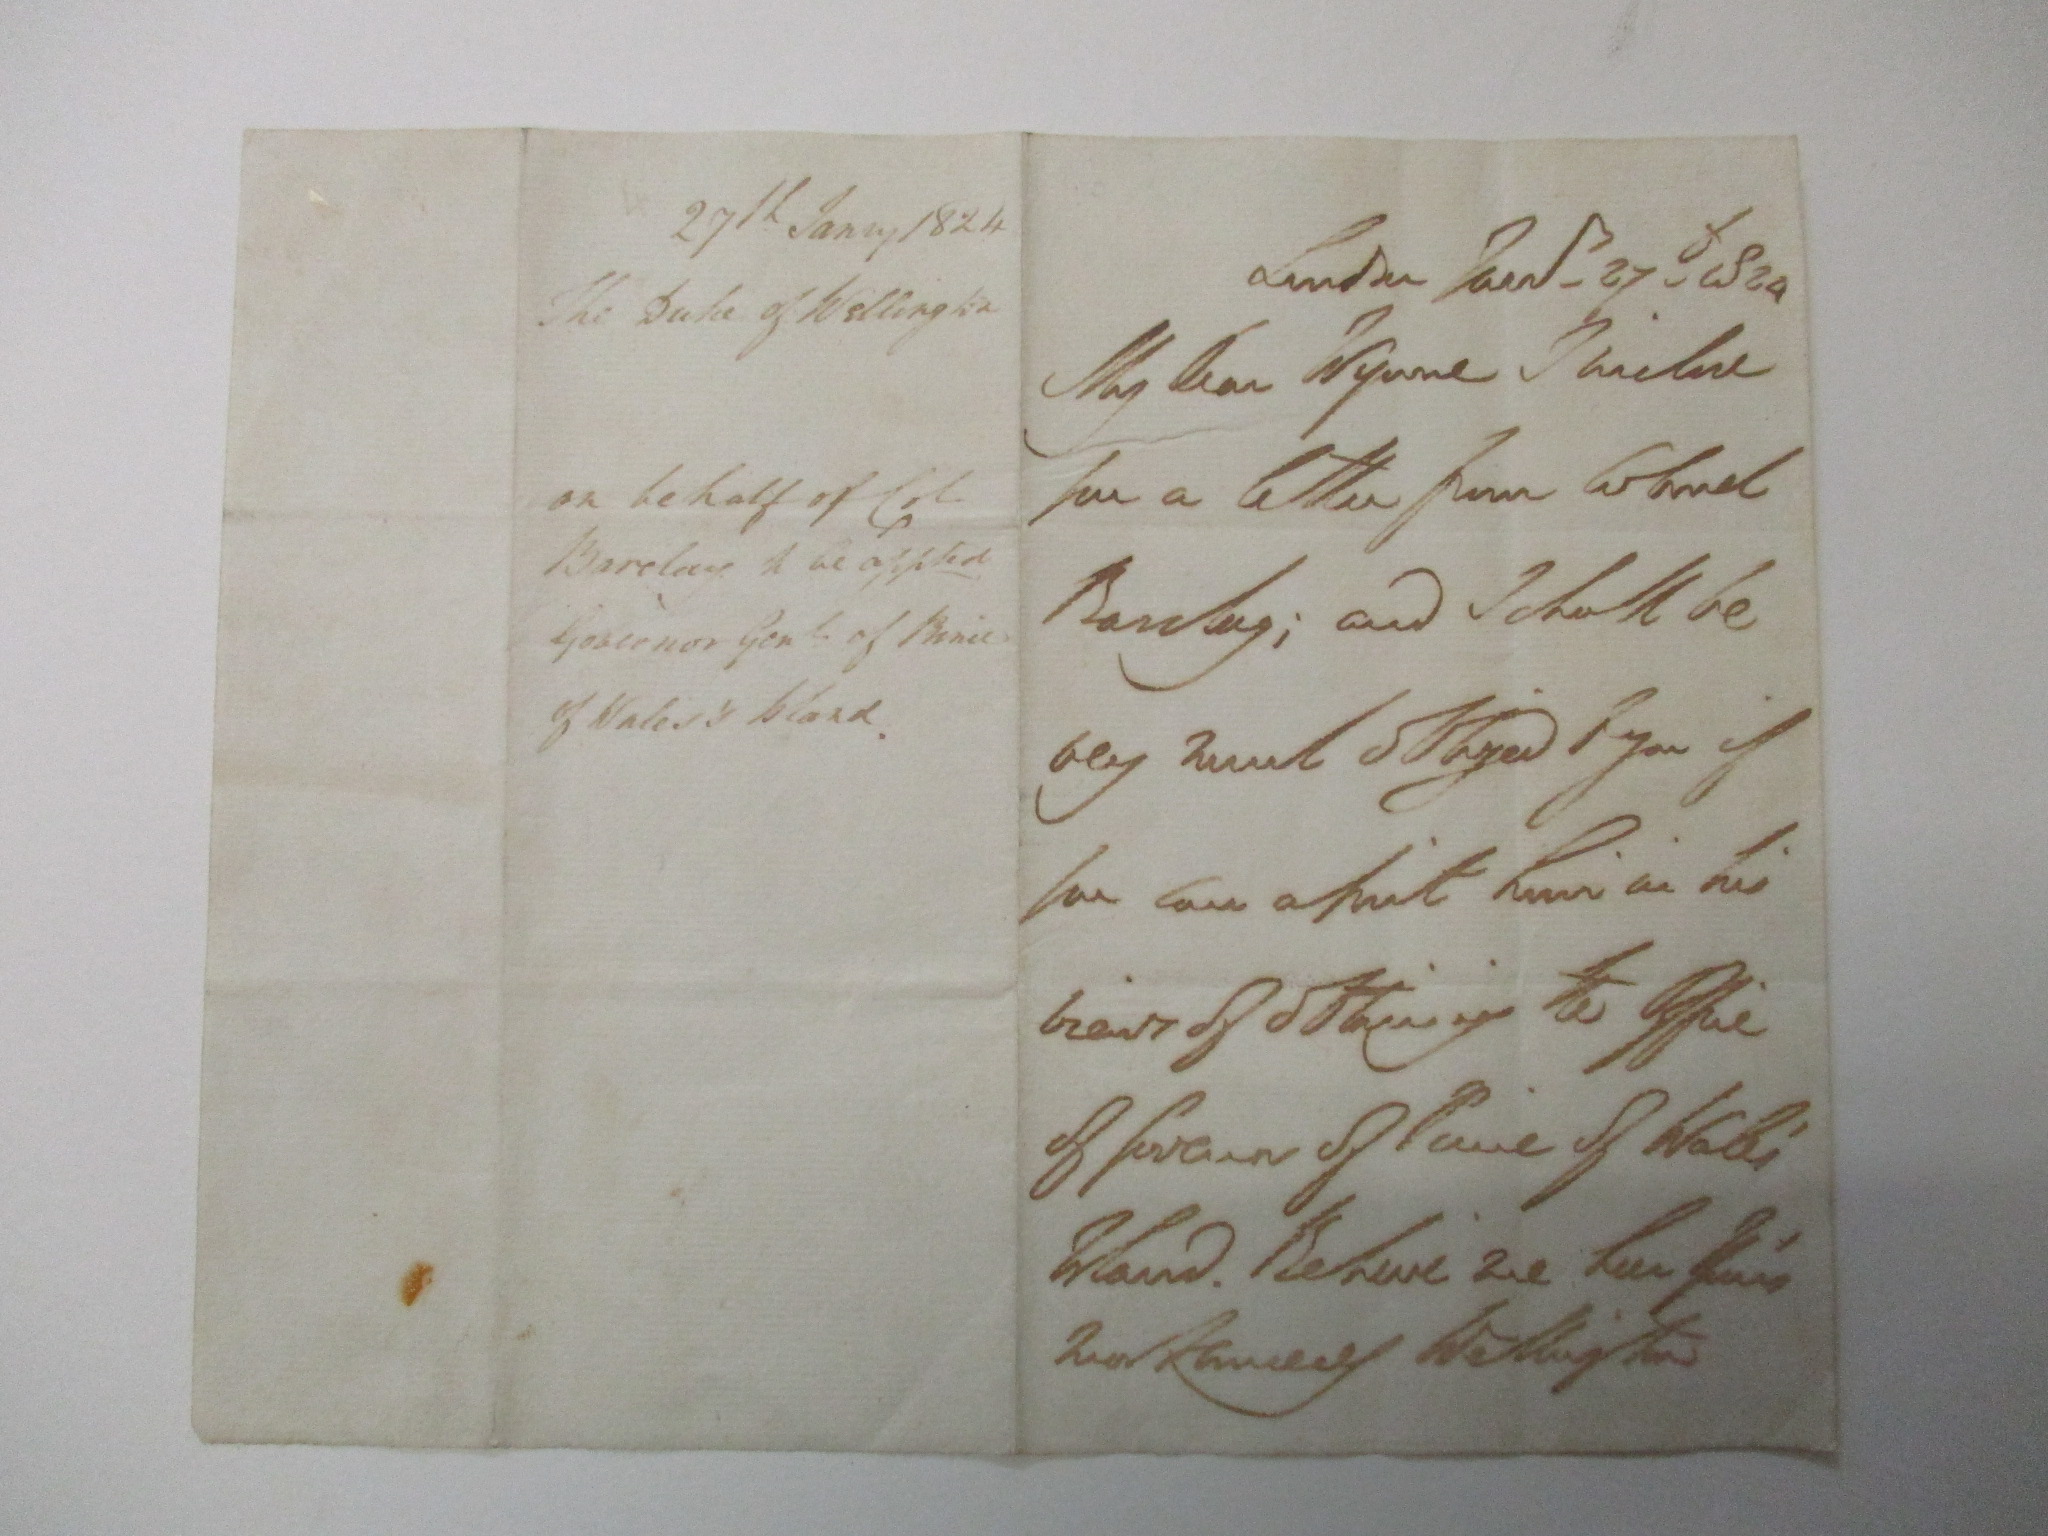 27th Janry 1824
The Duke of Wellington
on behalf of Col
Barclay to be appted
Governor Genl of Prince
of Wales's Island.
London Jany 27 1824
My Dear Wynne I inclose
you a letter from Colonel
Barclay; and I shall be
very much obliged to you if
you can assist him in his
views of obtaining the Office
of Governor of Prince of Wales's
Island. Believe me
Wellington